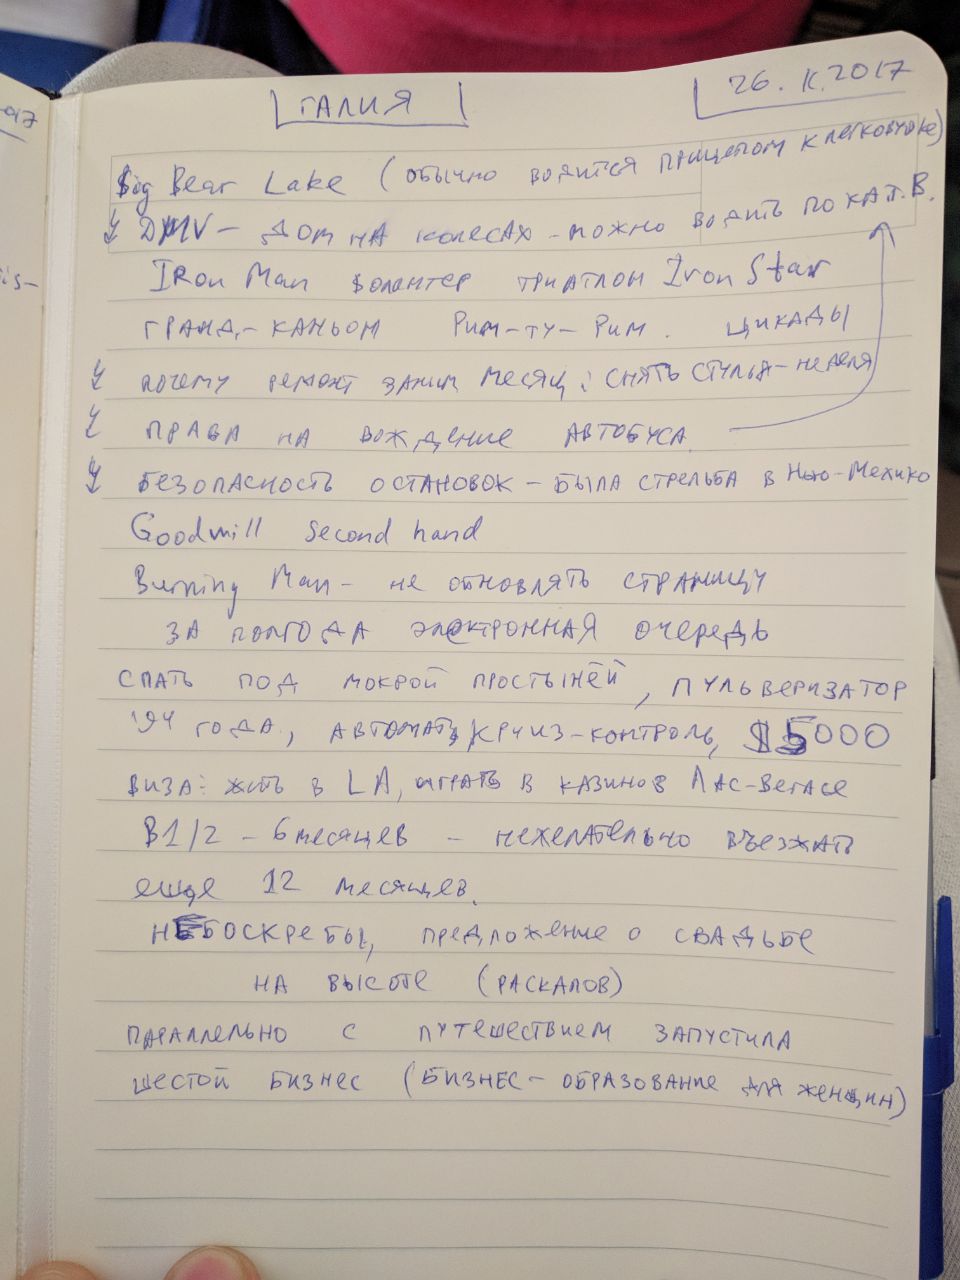 ГАЛИЯ
26.IX.2017
Big Bear Lake (обычно водится прицепом к легковушке)
DMV – дом на колесах – можно водить по кат. В.
Iron Man волонтер триатлон Iron Star
гранд-каньон Рим-ту-Рим. цикады
почему ремонт занял месяц: снять стулья – неделя
права на вождение автобуса
безопасность остановок – была стрельба в Нью-Мехико
Goodwill second hand
Burning Man – не обновлять страницу
за полгода электронная очередь
спать под мокрой простынёй, пульверизатор
'94 года, автомат, круиз-контроль, $5000
виза: жить в LA, играть в казино в Лас-Вегасе
B1/2 – 6 месяцев – нежелательно въезжать
еще 12 месяцев.
небоскребы, предложение о свадьбе
на высоте (раскапов)
параллельно с путешествием запустила
шестой бизнес (бизнес-образование для женщин)